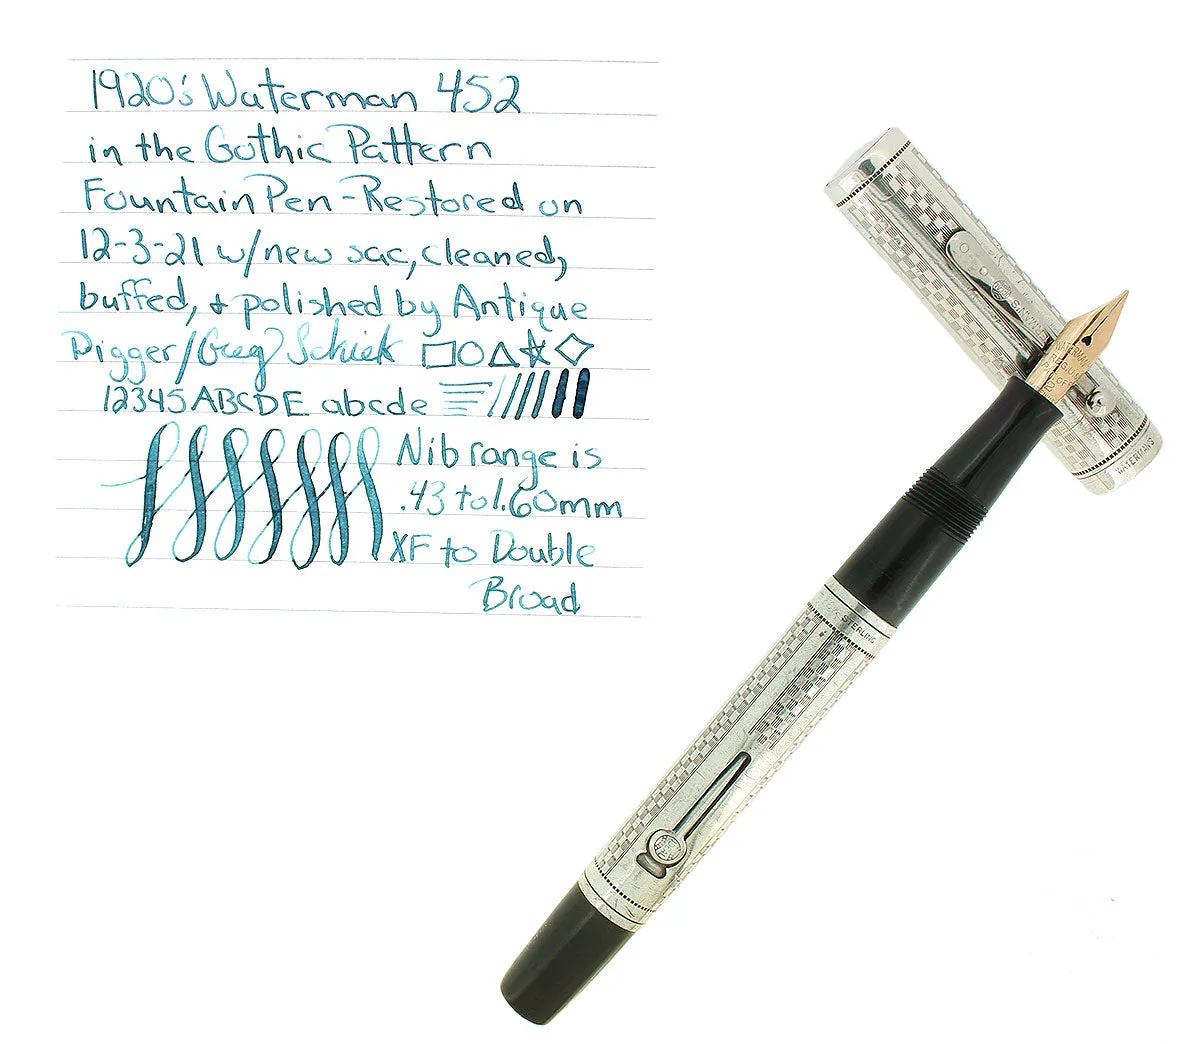 1920's Waterman 452
in the Gothic Pattern
Fountain Pen - Restored on
12-3-21 w/new sac, cleaned,
buffed, & polished by Antique
Digger/Greg Schiek
12345 ABCDE abcde
Nib range is
.43 to 1.60mm
XF to Double
Broad
STERLING
WATERMAN'S